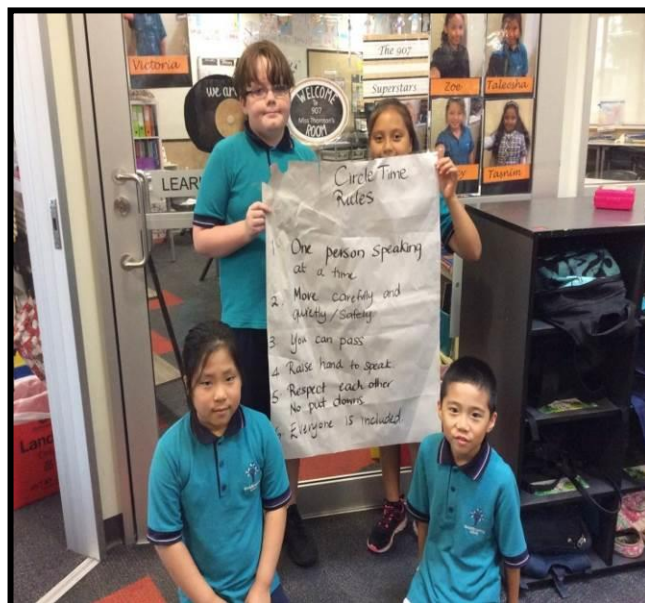 Victoria
we are
WELCOME
To
907
Miss Thermon's
ROOM
The 907
Superstars
Zoe
Taleesha
Tasnim
LEAR
Circle Time
Rules
1 One person speaking
at a time
2. Move carefully and
quietly/Safely
3 You can pass
4 Raise hand to speak
5 Respect each other
No put downs
6 Everyone is included